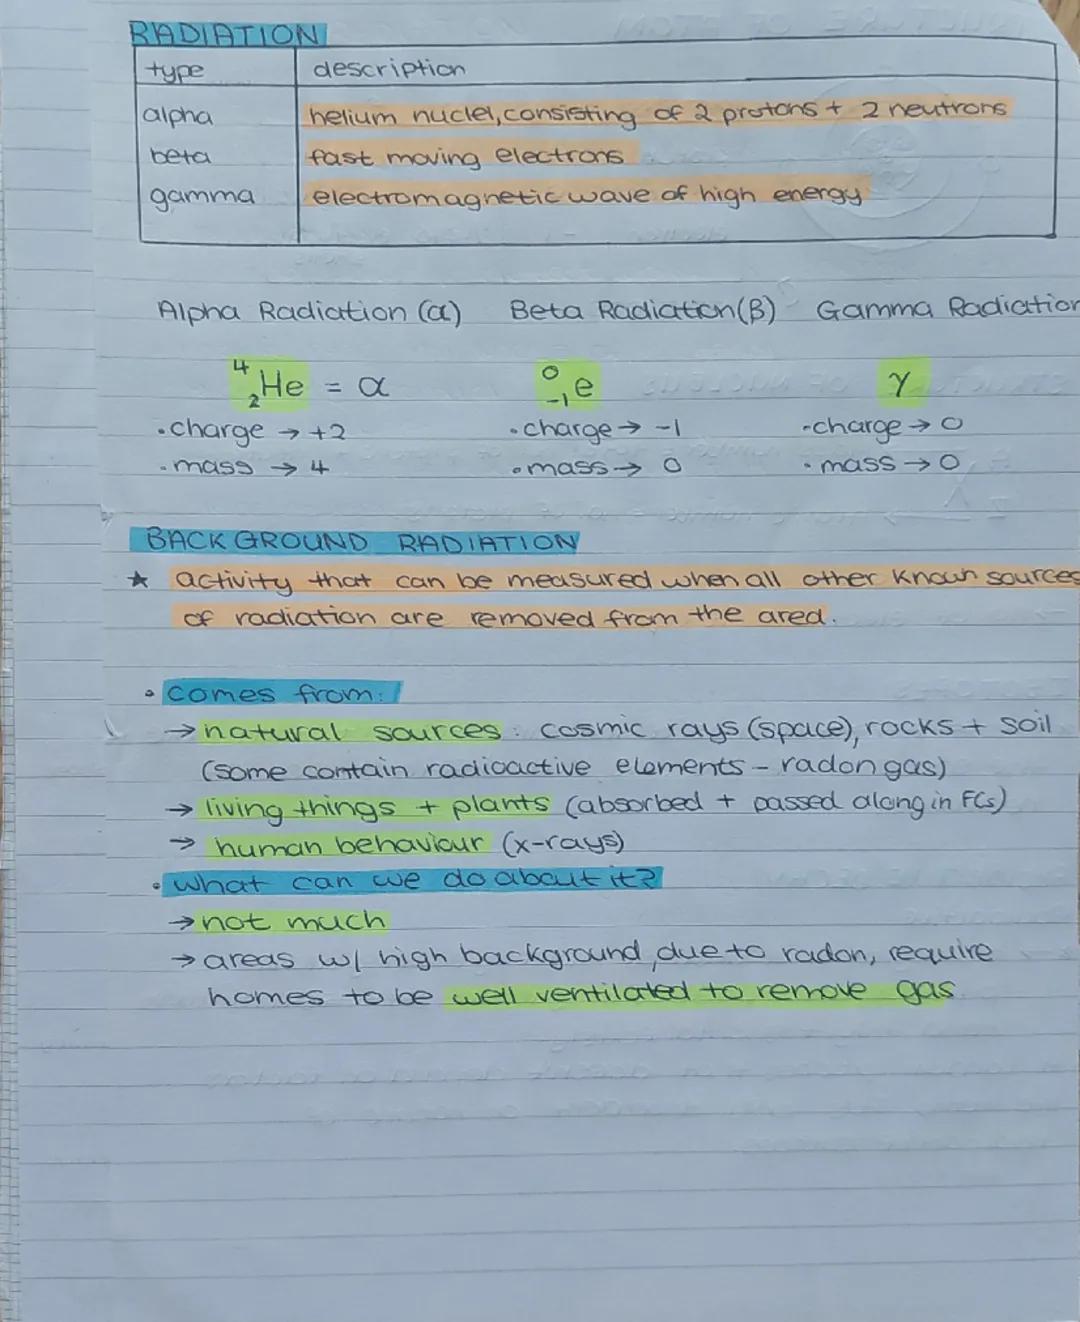 RADIATION
type description
alpha helium nuclei, consisting of 2 protons + 2 neutrons
beta fast moving electrons
gamma electromagnetic wave of high energy
Alpha Radiation (α) Beta Radiation (β) Gamma Radiation
⁴₂He = α ⁰₋₁e γ
• charge → +2 • charge → -1 • charge → 0
• mass → 4 • mass → 0 • mass → 0
BACKGROUND RADIATION
★ activity that can be measured when all other known sources
of radiation are removed from the area.
• comes from:
→ natural sources: cosmic rays (space), rocks + soil
(some contain radioactive elements - radon gas)
→ living things + plants (absorbed + passed along in FCs)
→ human behaviour (x-rays)
• what can we do about it?
→ not much
→ areas w/ high background, due to radon, require
homes to be well ventilated to remove gas